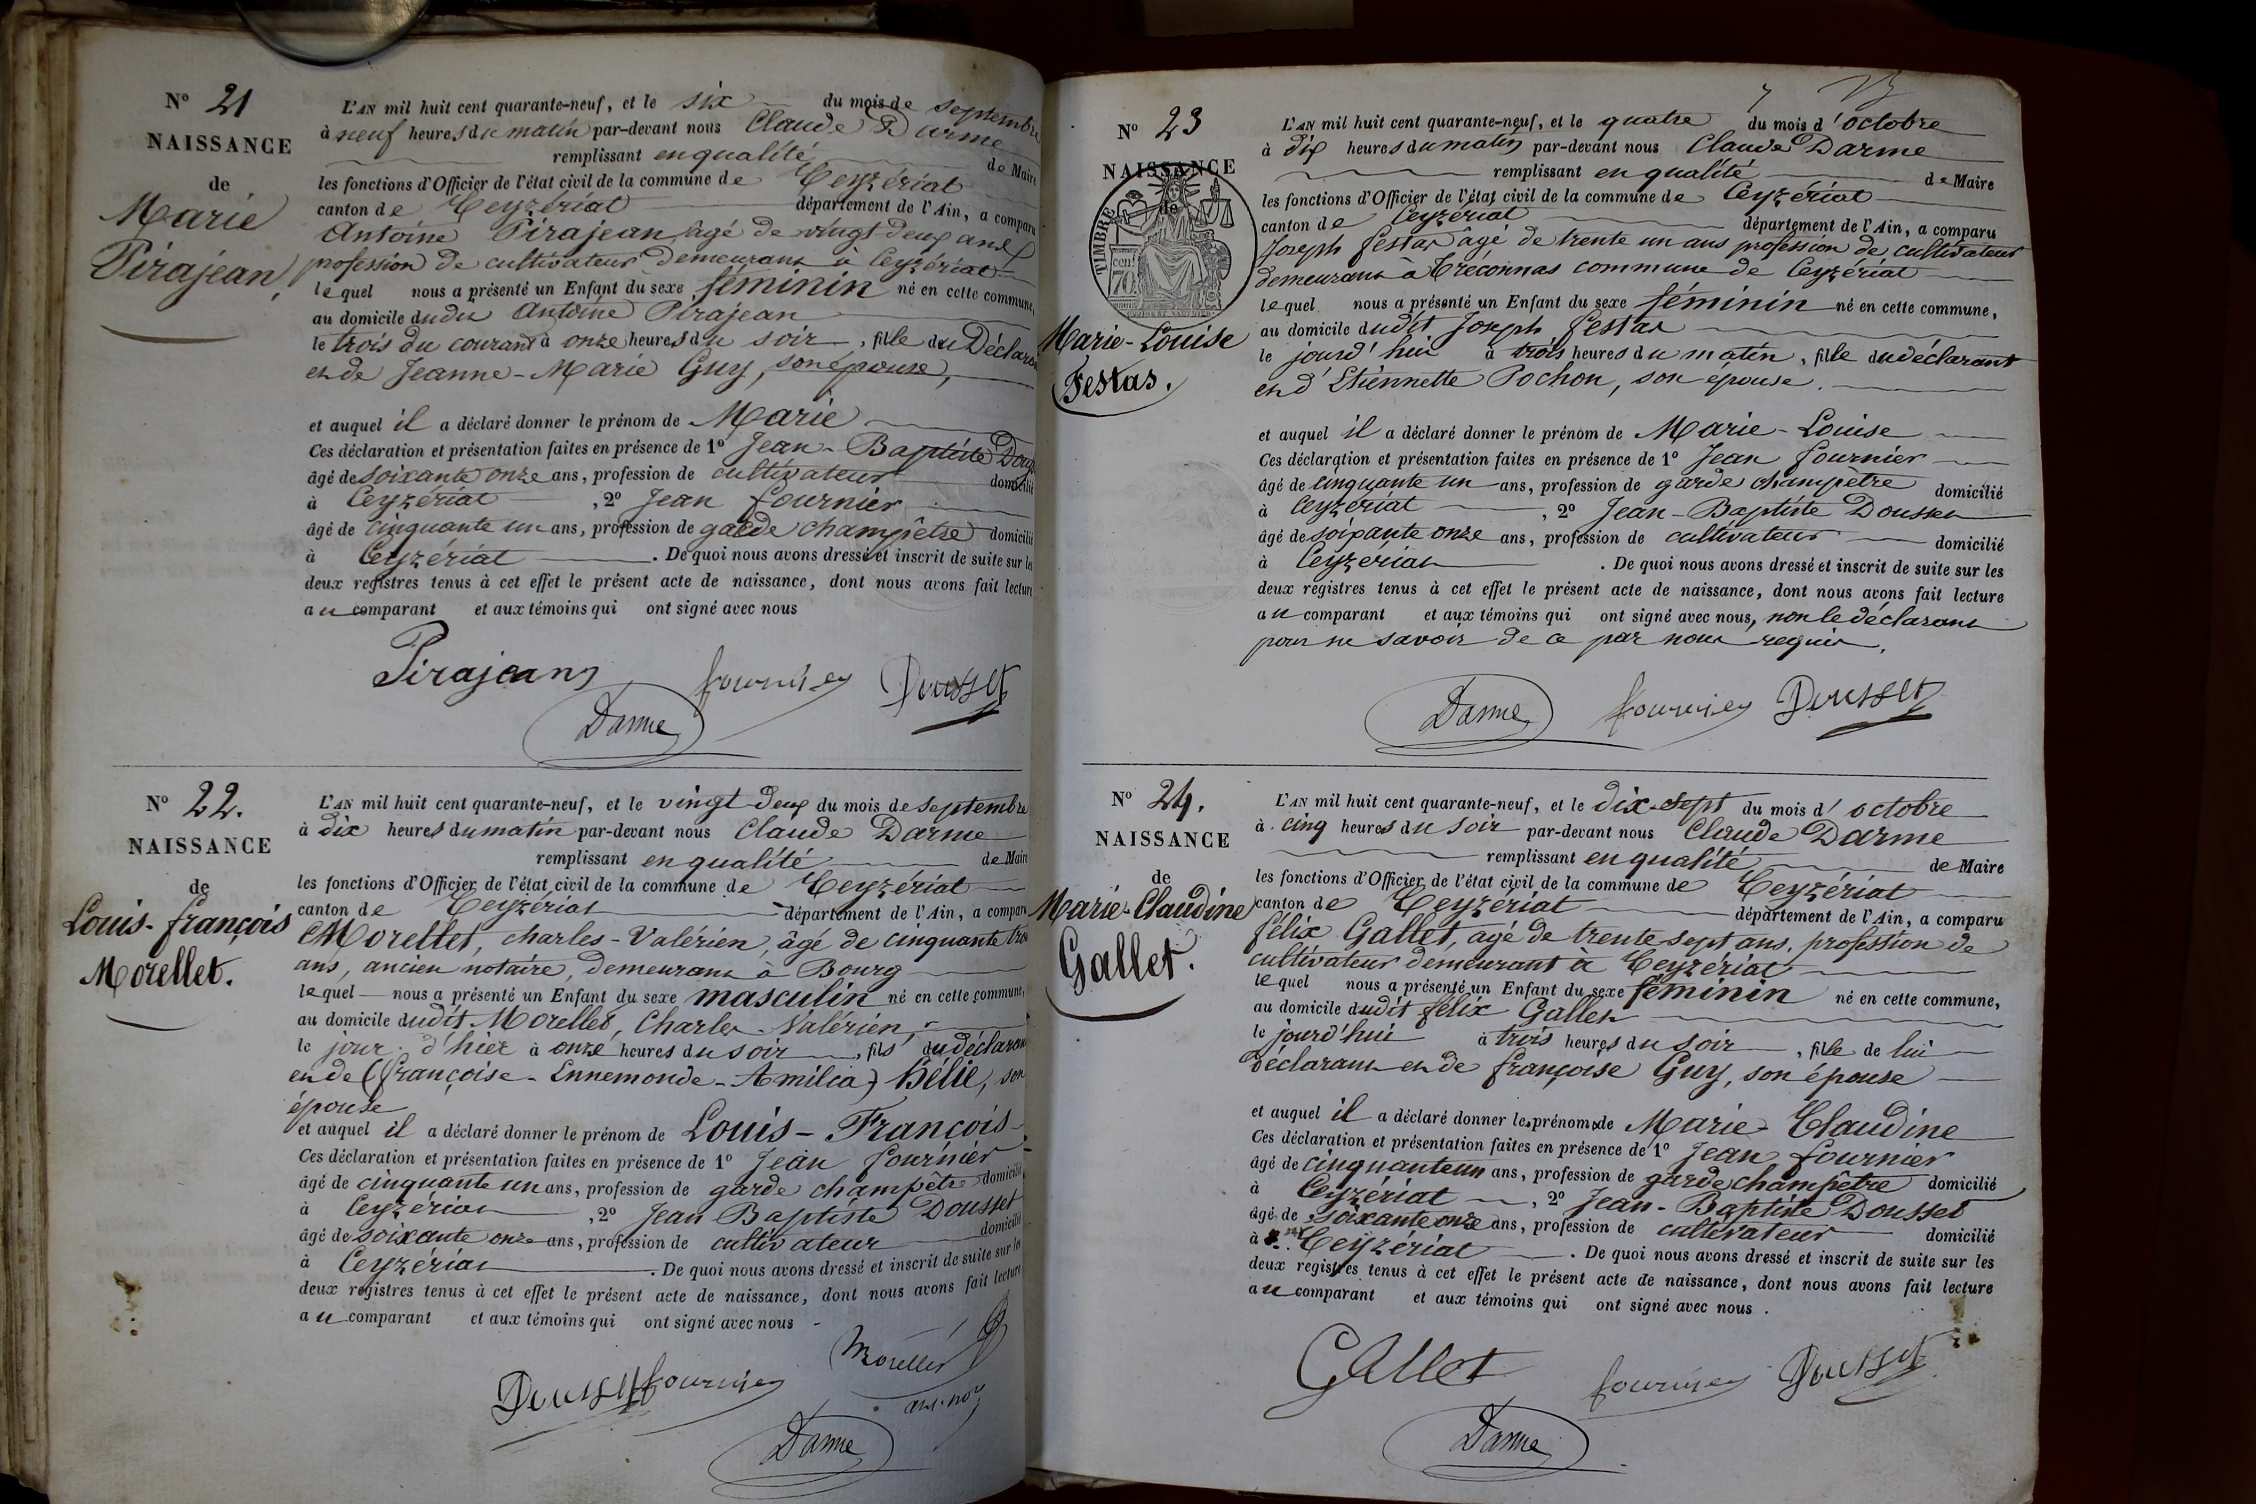 N° 21
NAISSANCE
de
Marie
Pirajean,
L'AN mil huit cent quarante-neuf, et le six du mois de septembre
à neuf heures du matin par-devant nous Claude Darme
remplissant en qualité de Maire
les fonctions d'Officier de l'état civil de la commune de Ceyzériat
canton de Ceyzériat département de l'Ain, a comparu
Antoine Pirajean, âgé de vingt deux ans
profession de cultivateur demeurant à Ceyzériat
lequel nous a présenté un Enfant du sexe féminin né en cette commune,
au domicile dudit Antoine Pirajean
le trois du courant à onze heures du soir, fille du Déclarant
et de Jeanne-Marie Guy, son épouse,
et auquel il a déclaré donner le prénom de Marie
Ces déclaration et présentation faites en présence de 1° Jean-Baptiste
âgé de soixante onze ans, profession de cultivateur domicilié
à Ceyzériat, 2° Jean fournier
âgé de cinquante un ans, profession de garde champêtre domicilié
à Ceyzériat. De quoi nous avons dressé et inscrit de suite sur les
deux registres tenus à cet effet le présent acte de naissance, dont nous avons fait lecture
au comparant et aux témoins qui ont signé avec nous
Pirajean fournier Dousset
Darme
N° 22.
NAISSANCE
de
Louis-françois
Morellet.
L'AN mil huit cent quarante-neuf, et le vingt deux du mois de septembre
à dix heures du matin par-devant nous Claude Darme
remplissant en qualité de Maire
les fonctions d'Officier de l'état civil de la commune de Ceyzériat
canton de Ceyzériat département de l'Ain, a comparu
Morellet, charles-Valérien, âgé de cinquante trois
ans, ancien notaire, demeurant à Bourg
lequel nous a présenté un Enfant du sexe masculin né en cette commune,
au domicile dudit Morellet, Charles-Valérien,
le jour d'hier à onze heures du soir, fils du déclarant
et de (françoise-Ennemonde-Amilia) Hélie, son
épouse
et auquel il a déclaré donner le prénom de Louis-François
Ces déclaration et présentation faites en présence de 1° Jean fournier
âgé de cinquante un ans, profession de garde champêtre domicilié
à Ceyzériat, 2° Jean Baptiste Dousset
âgé de soixante onze ans, profession de cultivateur domicilié
à Ceyzériat. De quoi nous avons dressé et inscrit de suite sur les
deux registres tenus à cet effet le présent acte de naissance, dont nous avons fait lecture
au comparant et aux témoins qui ont signé avec nous
Morellet
Dousset fournier
Darme
N° 23
NAISSANCE
de
TIMBRE
70
Marie-Louise
Festas.
L'AN mil huit cent quarante-neuf, et le quatre du mois d'octobre
à dix heures du matin par-devant nous Claude Darme
remplissant en qualité de Maire
les fonctions d'Officier de l'état civil de la commune de Ceyzériat
canton de Ceyzériat département de l'Ain, a comparu
Joseph festas âgé de trente un ans profession de cultivateur
demeurant à Tréconnas commune de Ceyzériat
lequel nous a présenté un Enfant du sexe féminin né en cette commune,
au domicile dudit Joseph festas
le jourd'hui à trois heures du matin, fille du déclarant
et d'Etiennette Pochon, son épouse.
et auquel il a déclaré donner le prénom de Marie-Louise
Ces déclaration et présentation faites en présence de 1° Jean fournier
âgé de cinquante un ans, profession de garde champêtre domicilié
à Ceyzériat, 2° Jean-Baptiste Dousset
âgé de soixante onze ans, profession de cultivateur domicilié
à Ceyzériat. De quoi nous avons dressé et inscrit de suite sur les
deux registres tenus à cet effet le présent acte de naissance, dont nous avons fait lecture
au comparant et aux témoins qui ont signé avec nous, non le déclarant
pour ne savoir de ce par nous requis.
Darme fournier Dousset
N° 24.
NAISSANCE
de
Marie-Claudine
Gallet.
L'AN mil huit cent quarante-neuf, et le dix-sept du mois d'octobre
à cinq heures du soir par-devant nous Claude Darme
remplissant en qualité de Maire
les fonctions d'Officier de l'état civil de la commune de Ceyzériat
canton de Ceyzériat département de l'Ain, a comparu
félix Gallet, agé de trente sept ans, profession de
cultivateur demeurant à Ceyzériat
lequel nous a présenté un Enfant du sexe féminin né en cette commune,
au domicile dudit félix Gallet
le jourd'hui à trois heures du soir, fille de lui
déclarant et de françoise Guy, son épouse
et auquel il a déclaré donner les prénom de Marie-Claudine
Ces déclaration et présentation faites en présence de 1° Jean fournier
âgé de cinquante un ans, profession de garde champêtre domicilié
à Ceyzériat, 2° Jean-Baptiste Dousset
âgé de soixante onze ans, profession de cultivateur domicilié
à Ceyzériat. De quoi nous avons dressé et inscrit de suite sur les
deux registres tenus à cet effet le présent acte de naissance, dont nous avons fait lecture
au comparant et aux témoins qui ont signé avec nous.
Gallet fournier Dousset
Darme